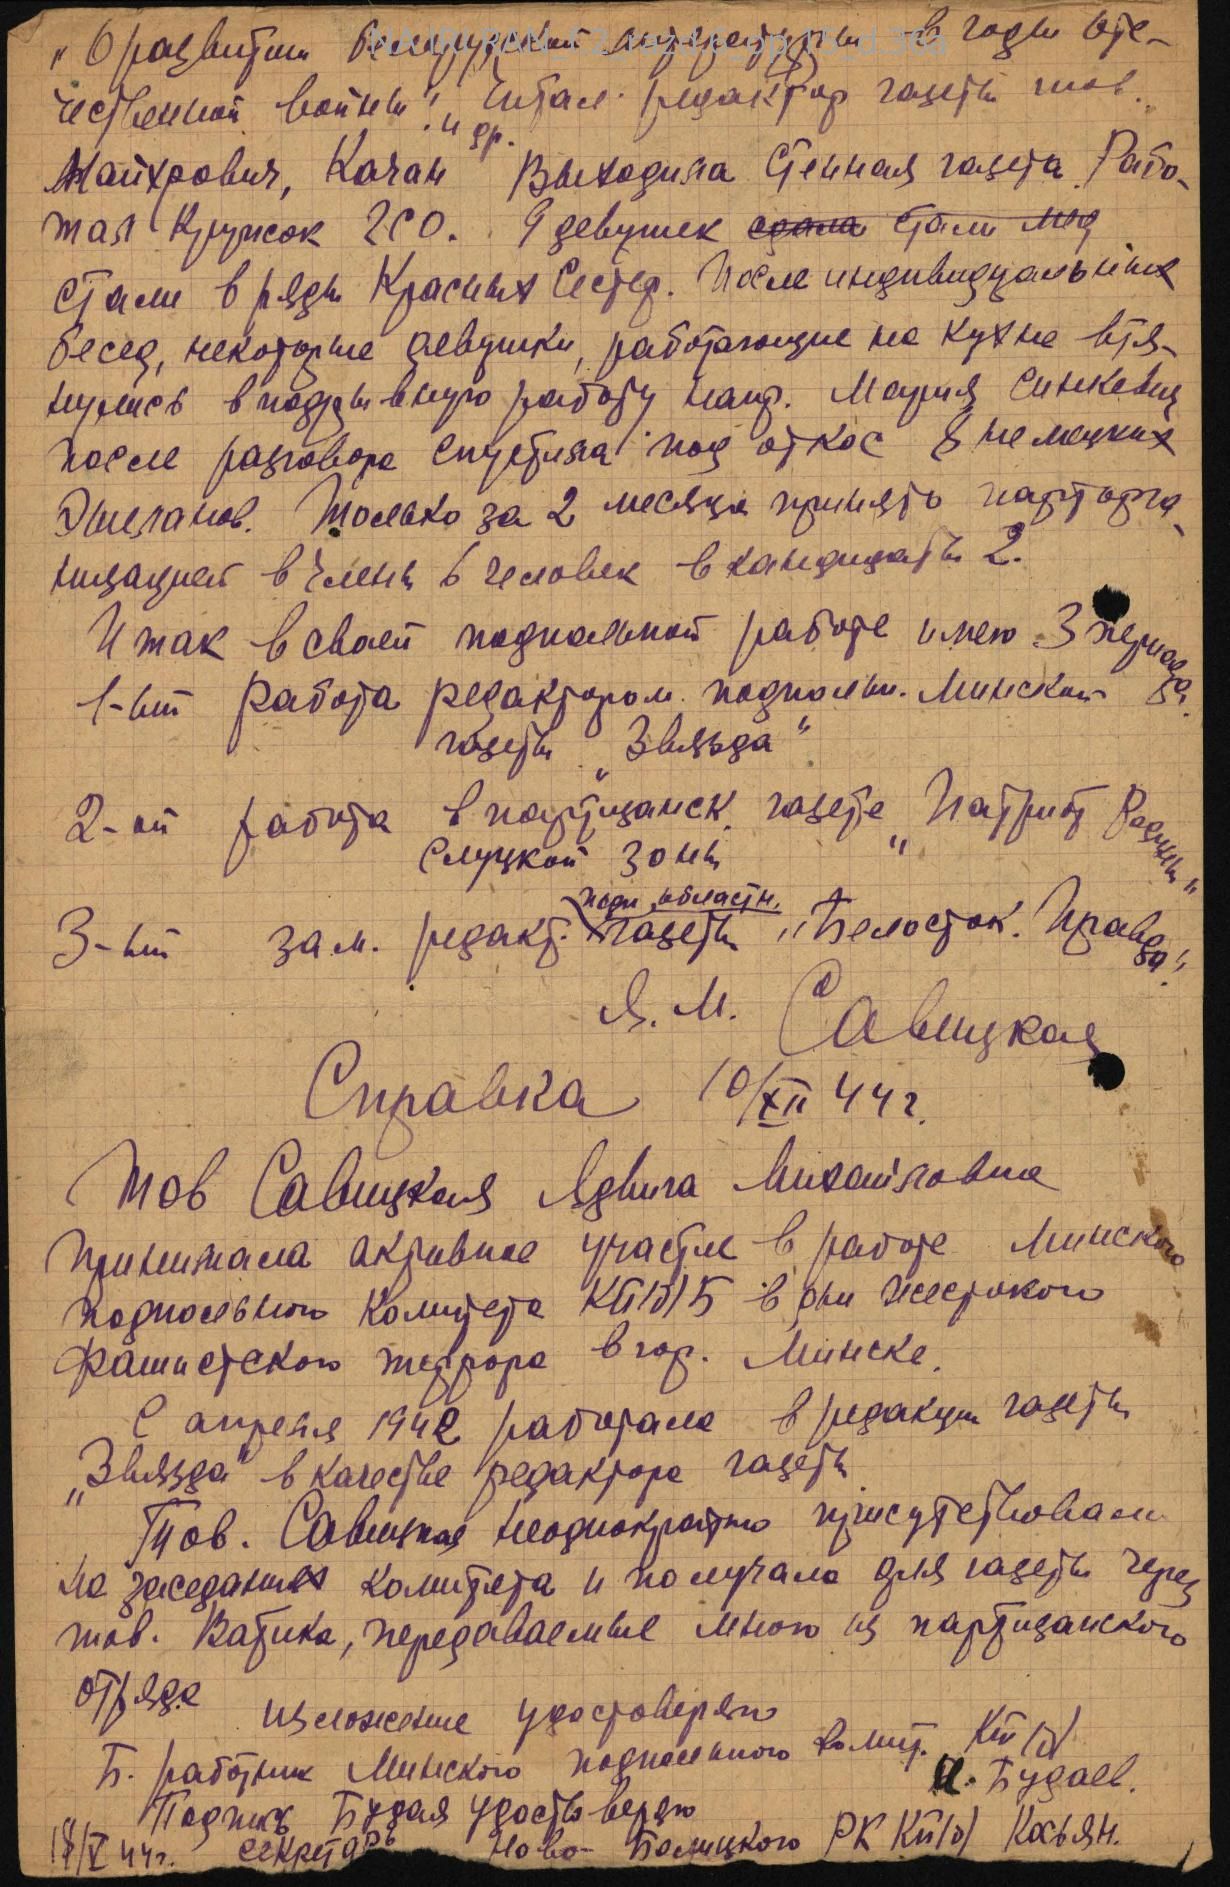 „О развитии белорусской литературы в годы оте-
чественной войны". Читал редактор газеты тов.
и др.
Майхрович, Качан Выходила Стенная газета. Рабо-
тал Кружок ГСО. 9 девушек сдали стали мед
стали в ряды Красных Сестер. После индивидуальных
бесед, некоторые девушки, работающие на кухне втя-
нулись в подрывную работу напр. Мария Синкевич
после разговора спустила под откос 8 немецких
Эшелонов. Только за 2 месяца принято парторга-
низацией в члены 6 человек в кандидаты 2.
Итак в своей подпольной работе имею 3 периода
1-ый работа редактором подпольн. Минской
газеты „Звязда"
2-ой работа в партизанск. газете „Патриот Родины"
Слуцкой зоны
подп. областн.
3-ый зам. редакт. газеты „Белосток. Правда"
Я. М. Савицкая
Справка 10/XII 44 г.
Тов Савицкая Ядвига Михайловна
принимала активное участие в работе Минского
подпольного Комитета КП/б/Б в дни жестокого
фашистского террора в гор. Минске.
С апреля 1942 работала в редакции газеты
„Звязда" в качестве редактора газеты
Тов. Савицкая неоднократно присутствовала
на заседаниях комитета и получала для газеты через
тов. Ватика, передаваемые мною из партизанского
отряда
изложенное удостоверяю
Б. работник Минского подпольного комит. КП/б/
И. Будаев.
Подпись Будая удостоверяю
секретарь Ново-Белицкого РК КП/б/ Касьян.